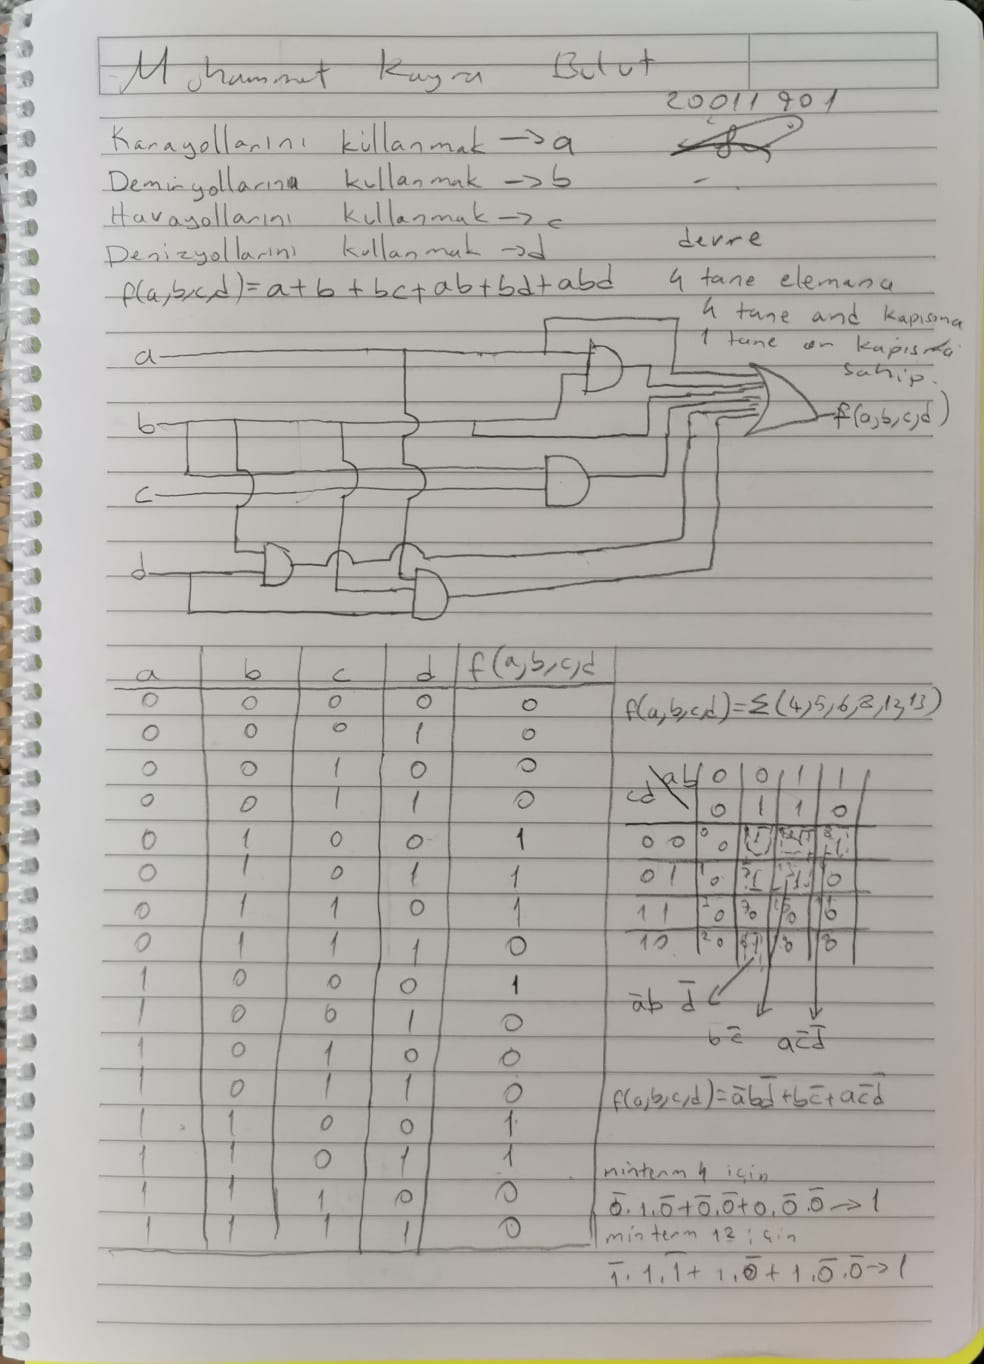 Muhammet Kayra Bulut
20011901
Karayollarını kullanmak → a
Demiryollarına kullanmak → b
Havayollarını kullanmak → c
Denizyollarını kullanmak → d
f(a,b,c,d)=a+b+bc+ab+bd+abd
devre
4 tane elemana
4 tane and kapısına
1 tane or kapısına
sahip.
a
b
c
d
f(a,b,c,d)
a b c d f(a,b,c,d
0 0 0 0 0
0 0 0 1 0
0 0 1 0 0
0 0 1 1 0
0 1 0 0 1
0 1 0 1 1
0 1 1 0 1
0 1 1 1 0
1 0 0 0 1
1 0 0 1 0
1 0 1 0 0
1 0 1 1 0
1 1 0 0 1
1 1 0 1 1
1 1 1 0 0
1 1 1 1 0
f(a,b,c,d)=Σ(4,5,6,8,12,13)
cd\ab 0 0 1 1
0 1 1 0
0 0 0 1 1 1
0 1 0 1 1 0
1 1 0 0 0 0
1 0 0 1 0 0
a̅b d̅
bc̅ ac̅d̅
f(a,b,c,d)=a̅bd̅+bc̅+ac̅d̅
minterm 4 için
0̅.1.0̅+0̅.0̅+0.0̅.0̅→1
minterm 12 için
1̅.1.1̅+1.0̅+1.0̅.0̅→1